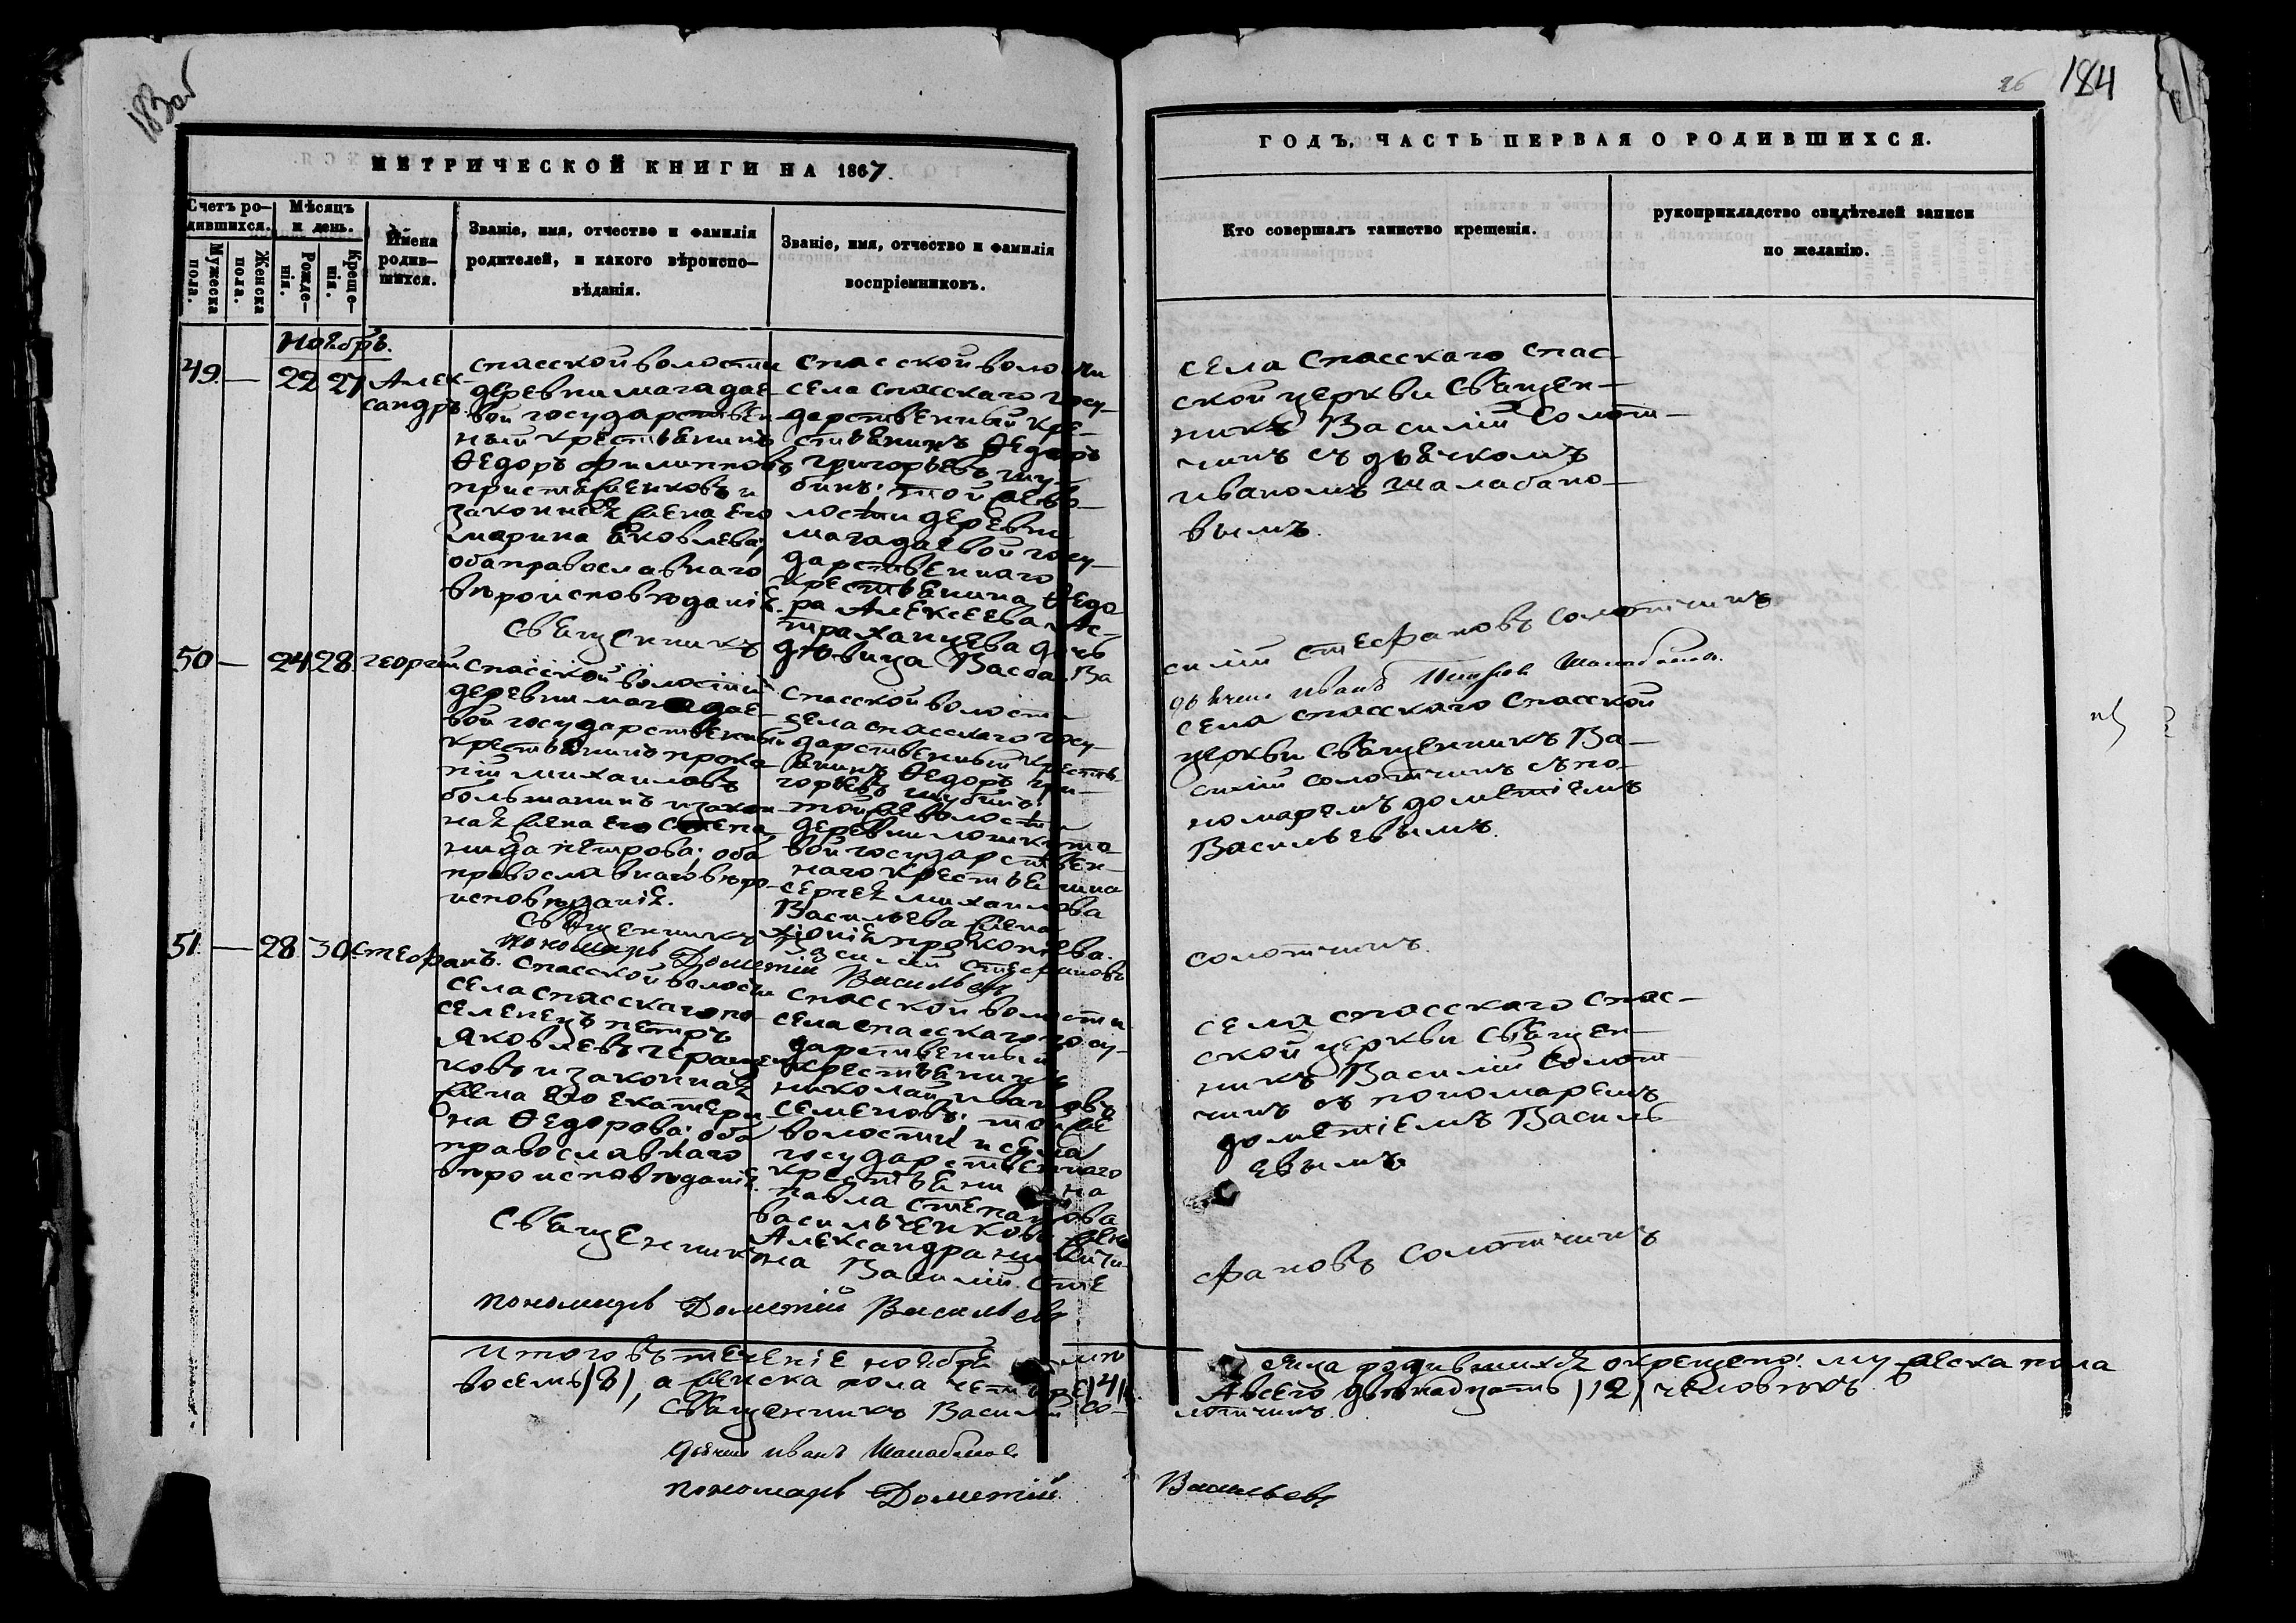 183 об
26 184
МЕТРИЧЕСКОЙ КНИГИ НА 1867.
ГОДЪ, ЧАСТЬ ПЕРВАЯ О РОДИВШИХСЯ.
Счетъ ро-
дившихся.
Мужеска пола.
Женска пола.
Мѣсяцъ
и день.
Рожде-
нія.
Креще-
нія.
Имена
родив-
шихся.
Званіе, имя, отчество и фамилія
родителей, и какого вѣроиспо-
вѣданія.
Званіе, имя, отчество и фамилія
воспріемниковъ.
Кто совершалъ таинство крещенія.
рукоприкладство свидѣтелей записи
по желанію.
Ноябрь.
49. — 22 27 Алек-
сандръ.
Спасской волости
деревни Магадае-
вой государствен-
ный крестьянинъ
Ѳедоръ Филипповъ
и
законная жена его
Марина Яковлева;
оба православнаго
вѣроисповѣданія.
Спасской волости
села Спасскаго госу-
дарственный кре-
стьянинъ Ѳедоръ
Григорьевъ Шу-
бинъ; той же во-
лости деревни
Магадаевой госу-
дарственнаго
крестьянина Ѳедо-
ра Алексеева Ас-
траханцева дочь
дѣвица Васса.
села Спасскаго Спас-
ской церкви Священ-
никъ Василій Солот-
чинъ съ дьячкомъ
Иваномъ Шалабано-
вымъ.
Священникъ Ва
силій Стефановъ Солотчинъ
дьячекъ Иванъ
50 — 24 28. Георгій
Спасской волости
деревни Магадае-
вой государственный
крестьянинъ Проко-
пій Михаиловъ
Большанинъ и закон-
ная жена его Степа-
нида Петрова; оба
православнаго вѣро-
исповѣданія.
Спасской волости
села Спасскаго госу-
дарственный крестьянинъ
Ѳедоръ Гри-
горьевъ Шубинъ;
той же волости
деревни
государствен-
наго крестьянина
Сергея Михаилова
Васильева жена
Хіонія Прокопьева.
села Спасскаго Спасской
церкви Священникъ Ва-
силій Солотчинъ съ по-
номаремъ Дометіемъ
Васильевымъ.
Священникъ Василій Стефановъ
Солотчинъ.
пономарь Дометій Васильевъ
51. — 28. 30 Стефанъ.
Спасской волости
села Спасскаго по-
селенецъ Петръ
Яковлевъ Геращен-
ковъ и законная
жена его Екатери-
на Ѳедорова; оба
православнаго
вѣроисповѣданія.
Спасской волости
села Спасскаго госу-
дарственный
крестьянинъ
Николай Ивановъ
Семеновъ; той же
волости и села
государственнаго
крестьянина
Павла Степанова
Васильченкова жена
Александра Никити-
на
села Спасскаго Спас-
ской церкви Священ-
никъ Василій Солот-
чинъ съ пономаремъ
Дометіемъ Василь-
евымъ
Священникъ Василій Сте
фановъ Солотчинъ
пономарь Дометій Васильевъ
Итого въ теченіе ноября
родившихся окрещено: мужеска пола
восемь (8), а женска пола четыре (4).
А всего двенадцать (12) человѣкъ.
Священникъ Василій Со-
лотчинъ.
дьячекъ Иванъ Шалабановъ
пономарь Дометій Васильевъ